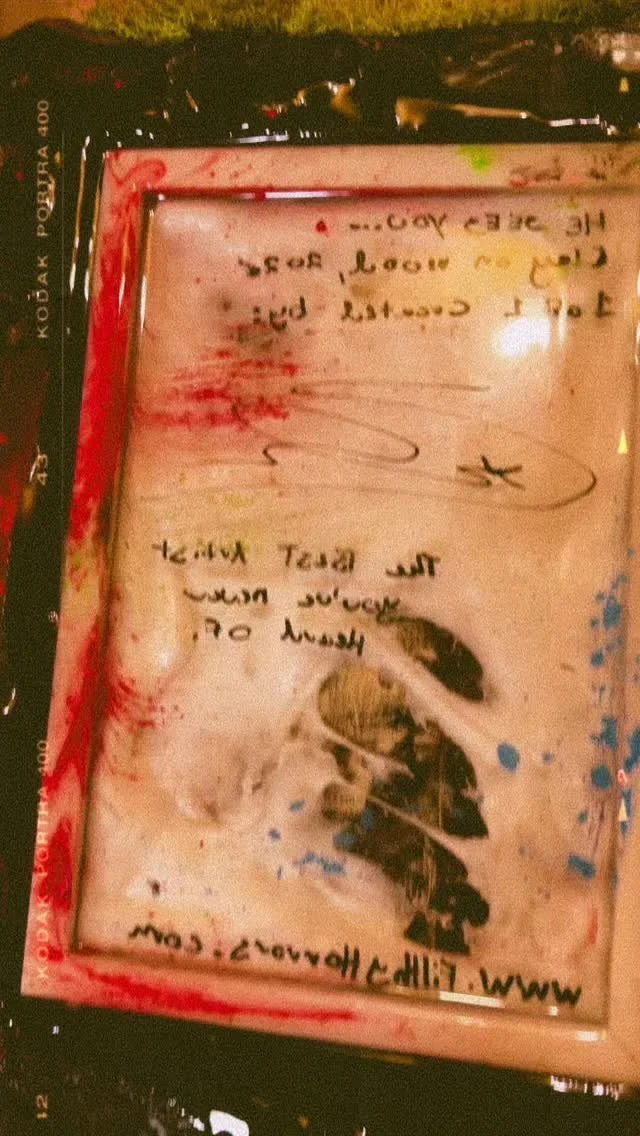 HE SEES YOU...
Clay on wood,
1 of 1 Created by:
The BesT Artist
you've never
Heard OF.
www.FilthyHorrors.com
KODAK PORTRA 400
43
KODAK PORTRA 400
12